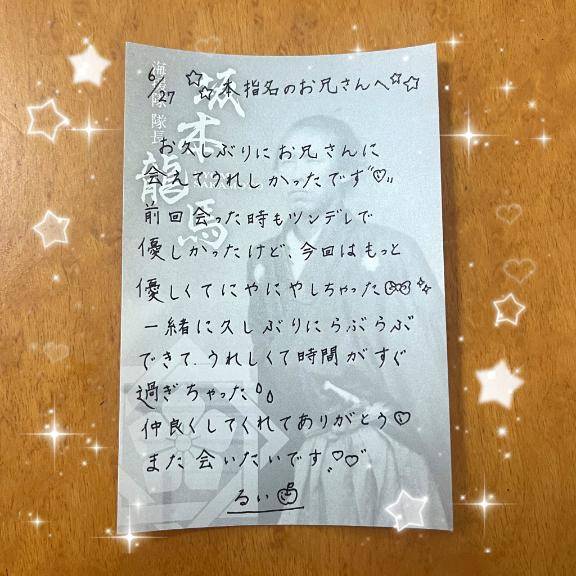 6/27 ☆☆本指名のお兄さんへ☆☆
お久しぶりにお兄さんに
会えてうれしかったです♡
前回会った時もツンデレで
優しかったけど、今回はもっと
優しくてにやにやしちゃった
一緒に久しぶりにらぶらぶ
できて、うれしくて時間がすぐ
過ぎちゃった
仲良くしてくれてありがとう♡
また会いたいです♡♡
るい
海援隊 隊長
坂本龍馬